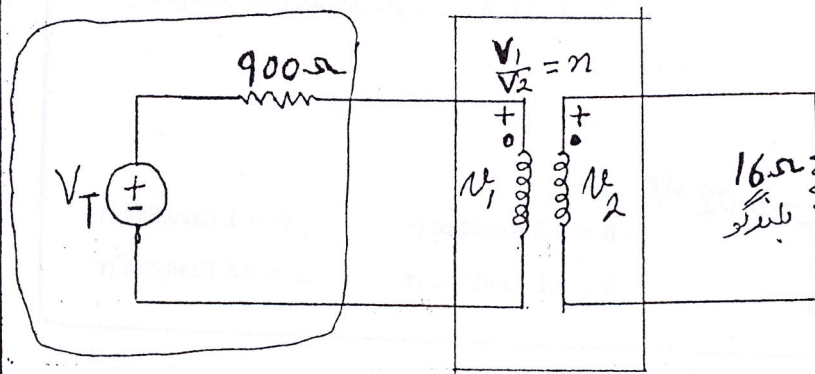 900Ω
V₁/V₂ = n
+ +
V_T + -
v₁ v₂
16Ω
بلندگو